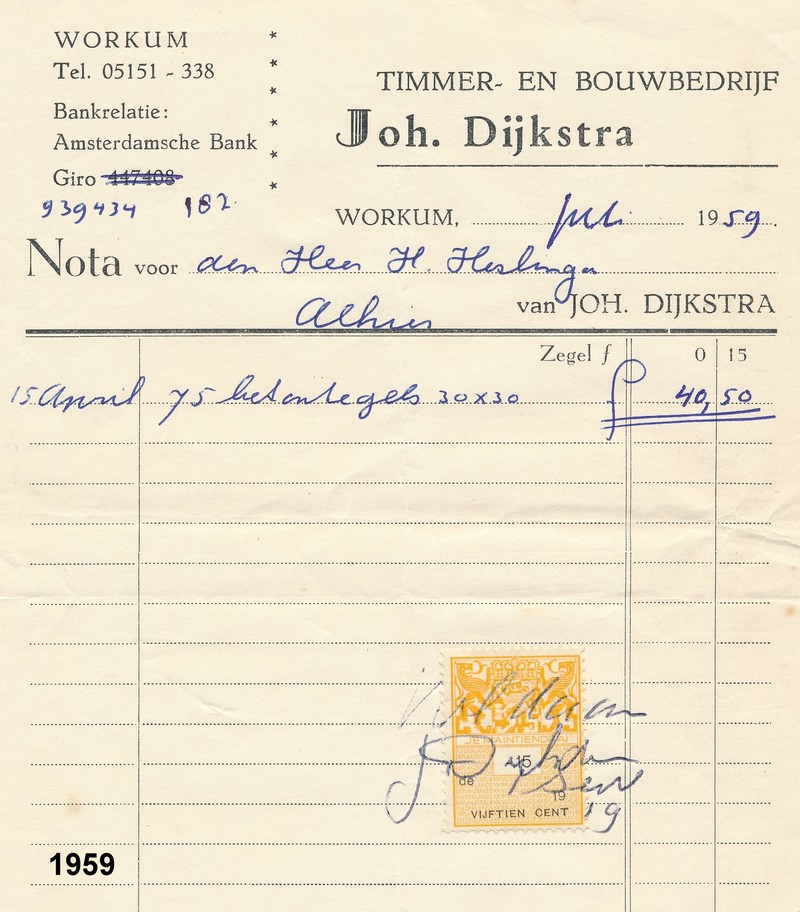 WORKUM
Tel. 05151 - 338
Bankrelatie:
Amsterdamsche Bank
Giro 447408
939434 182
TIMMER- EN BOUWBEDRIJF
Joh. Dijkstra
WORKUM, juli 1959.
Nota voor den Heer H. Heslinga
Alhier
van JOH. DIJKSTRA
Zegel f 0 15
15 April 75 betontegels 30x30 f 40,50
Voldaan
JE MAINTIENDRAI
15
de
19
VIJFTIEN CENT
1959